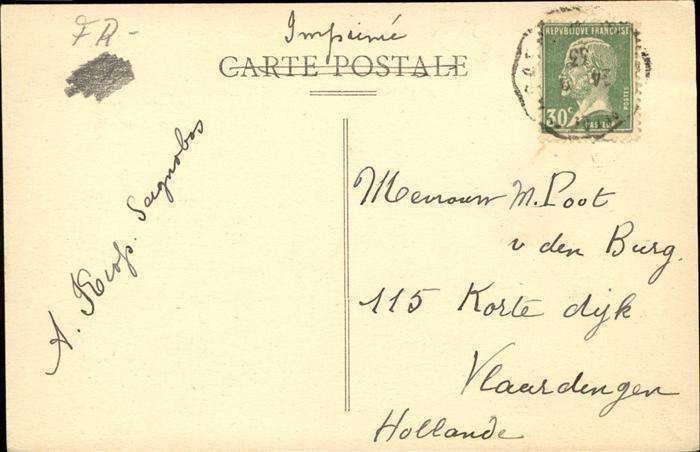 FR-
Imprimé
CARTE POSTALE
REPUBLIQUE FRANÇAISE
30c
POSTES
PASTEUR
A.
Mevrouw M. Poot
v den Burg.
115 Korte dijk
Vlaardingen
Hollande